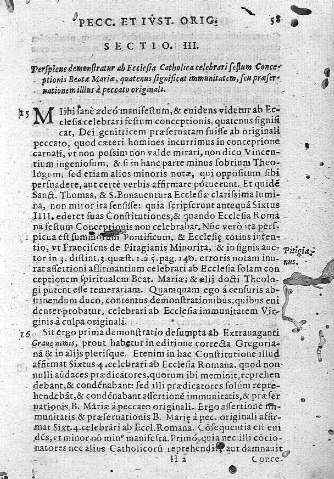 PECC. ET IVST. ORIG. 58
SECTIO. III.
Perspicue demonstratur ab Ecclesia Catholica celebrari festum Conce-
ptionis Beatæ Mariæ, quatenus significat immunitatem, seu præser-
uationem illius à peccato originali.
25 MIhi sanè adeò manifestum, & euidens videtur ab Ec-
clesia celebrari festum conceptionis, quatenus signifi-
cat, Dei genitricem præseruatam fuisse ab originali
peccato, quod cæteri homines incurrimus in conceptione
carnali, vt non possim non valde mirari, non dico Vincen-
tium ingeniosum, & in hanc parte minus sobrium Theo-
logum, sed etiam alios minoris notæ, qui oppositum sibi
persuadere, aut certè verbis affirmare potuerunt. Et quidē
Sanct. Thomas, & S. Bonauentura Ecclesiæ clarissima lumi-
na, non miror ita sensisse: quia scripserunt antequā Sixtus
IIII. ederet suas Constitutiones, & quando Ecclesia Roma
na festum Conceptionis non celebrabat. Nūc verò ita per-
spicua est summorum Pontificum, & Ecclesiæ totius inten-
tio, vt Franciscus de Pitigianis Minorita, & insignis auctor
in 3. distinct. 3. quæst. 1. a pag. 140. erroris notam inu-
rat assertioni affirmantium celebrari ab Ecclesia solam con
ceptionem spiritualem Beat. Mariæ; & alij docti Theolo-
gi putent esse temerariam. Quamquam ergo à censuris ab-
stinendum duco, contentus demonstrationibus, quibus eui
denter probatur, celebrari ab Ecclesia immunitatem Vir-
ginis à culpa originali.
26 Sit ergo prima demonstratio desumpta ab Extrauaganti
Graue nimis, prout habetur in editione correcta Gregoria-
na & in alijs plerisque. Etenim in hac Constitutione illud
affirmat Sixtus 4. celebrari ab Ecclesia Romana, quod non-
nulli audaces prædicatores, quorum ibi meminit, reprehen
debant, & condēnabant: sed illi prædicatores solum repre-
hendebāt, & condēnabant assertionē immunitatis, & præser
uationis B. Mariæ à peccato originali. Ergo assertionē im-
munitatis & præseruationis B. Mariæ à pec. originali affir-
mat Sixt. 4. celebrari ab Eccl. Romana. Cōsequentia est eui
dēs, et minor nō minº manifesta. Primò, quia nec illi cōcio-
natores nec alius Catholicorū reprehendit, aut damnauit
H 2 Conce-